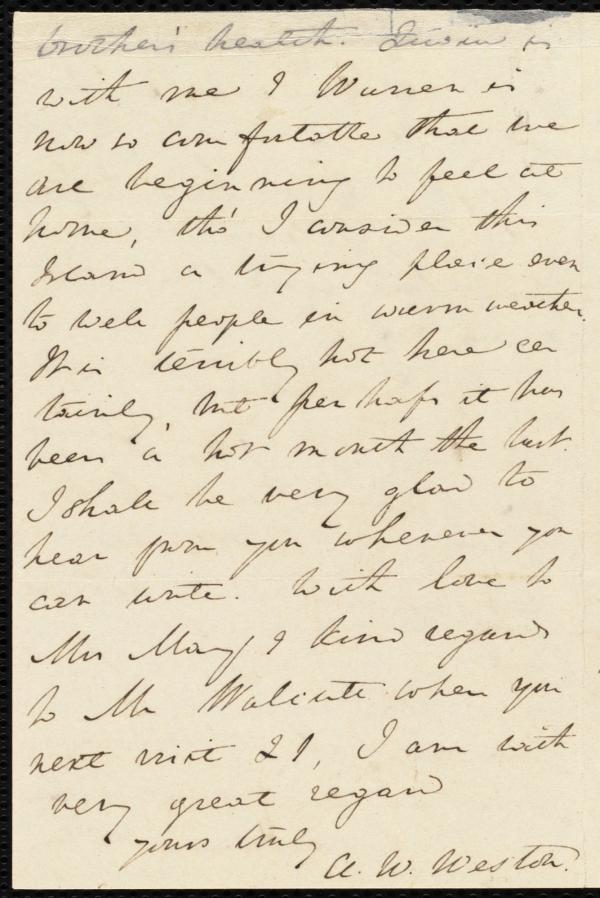 brother's health. Lucia is
with me & Warren is
now so comfortable that we
are beginning to feel at
home, tho' I consider this
Island a trying place even
to well people in warm weather.
It is terribly hot here cer
tainly, but perhaps it has
been a hot month the last.
I shall be very glad to
hear from you whenever you
can write. With love to
Mrs May & kind regards
to Mr Walcutt when you
next visit 21, I am with
very great regard
yours truly
A. W. Weston.